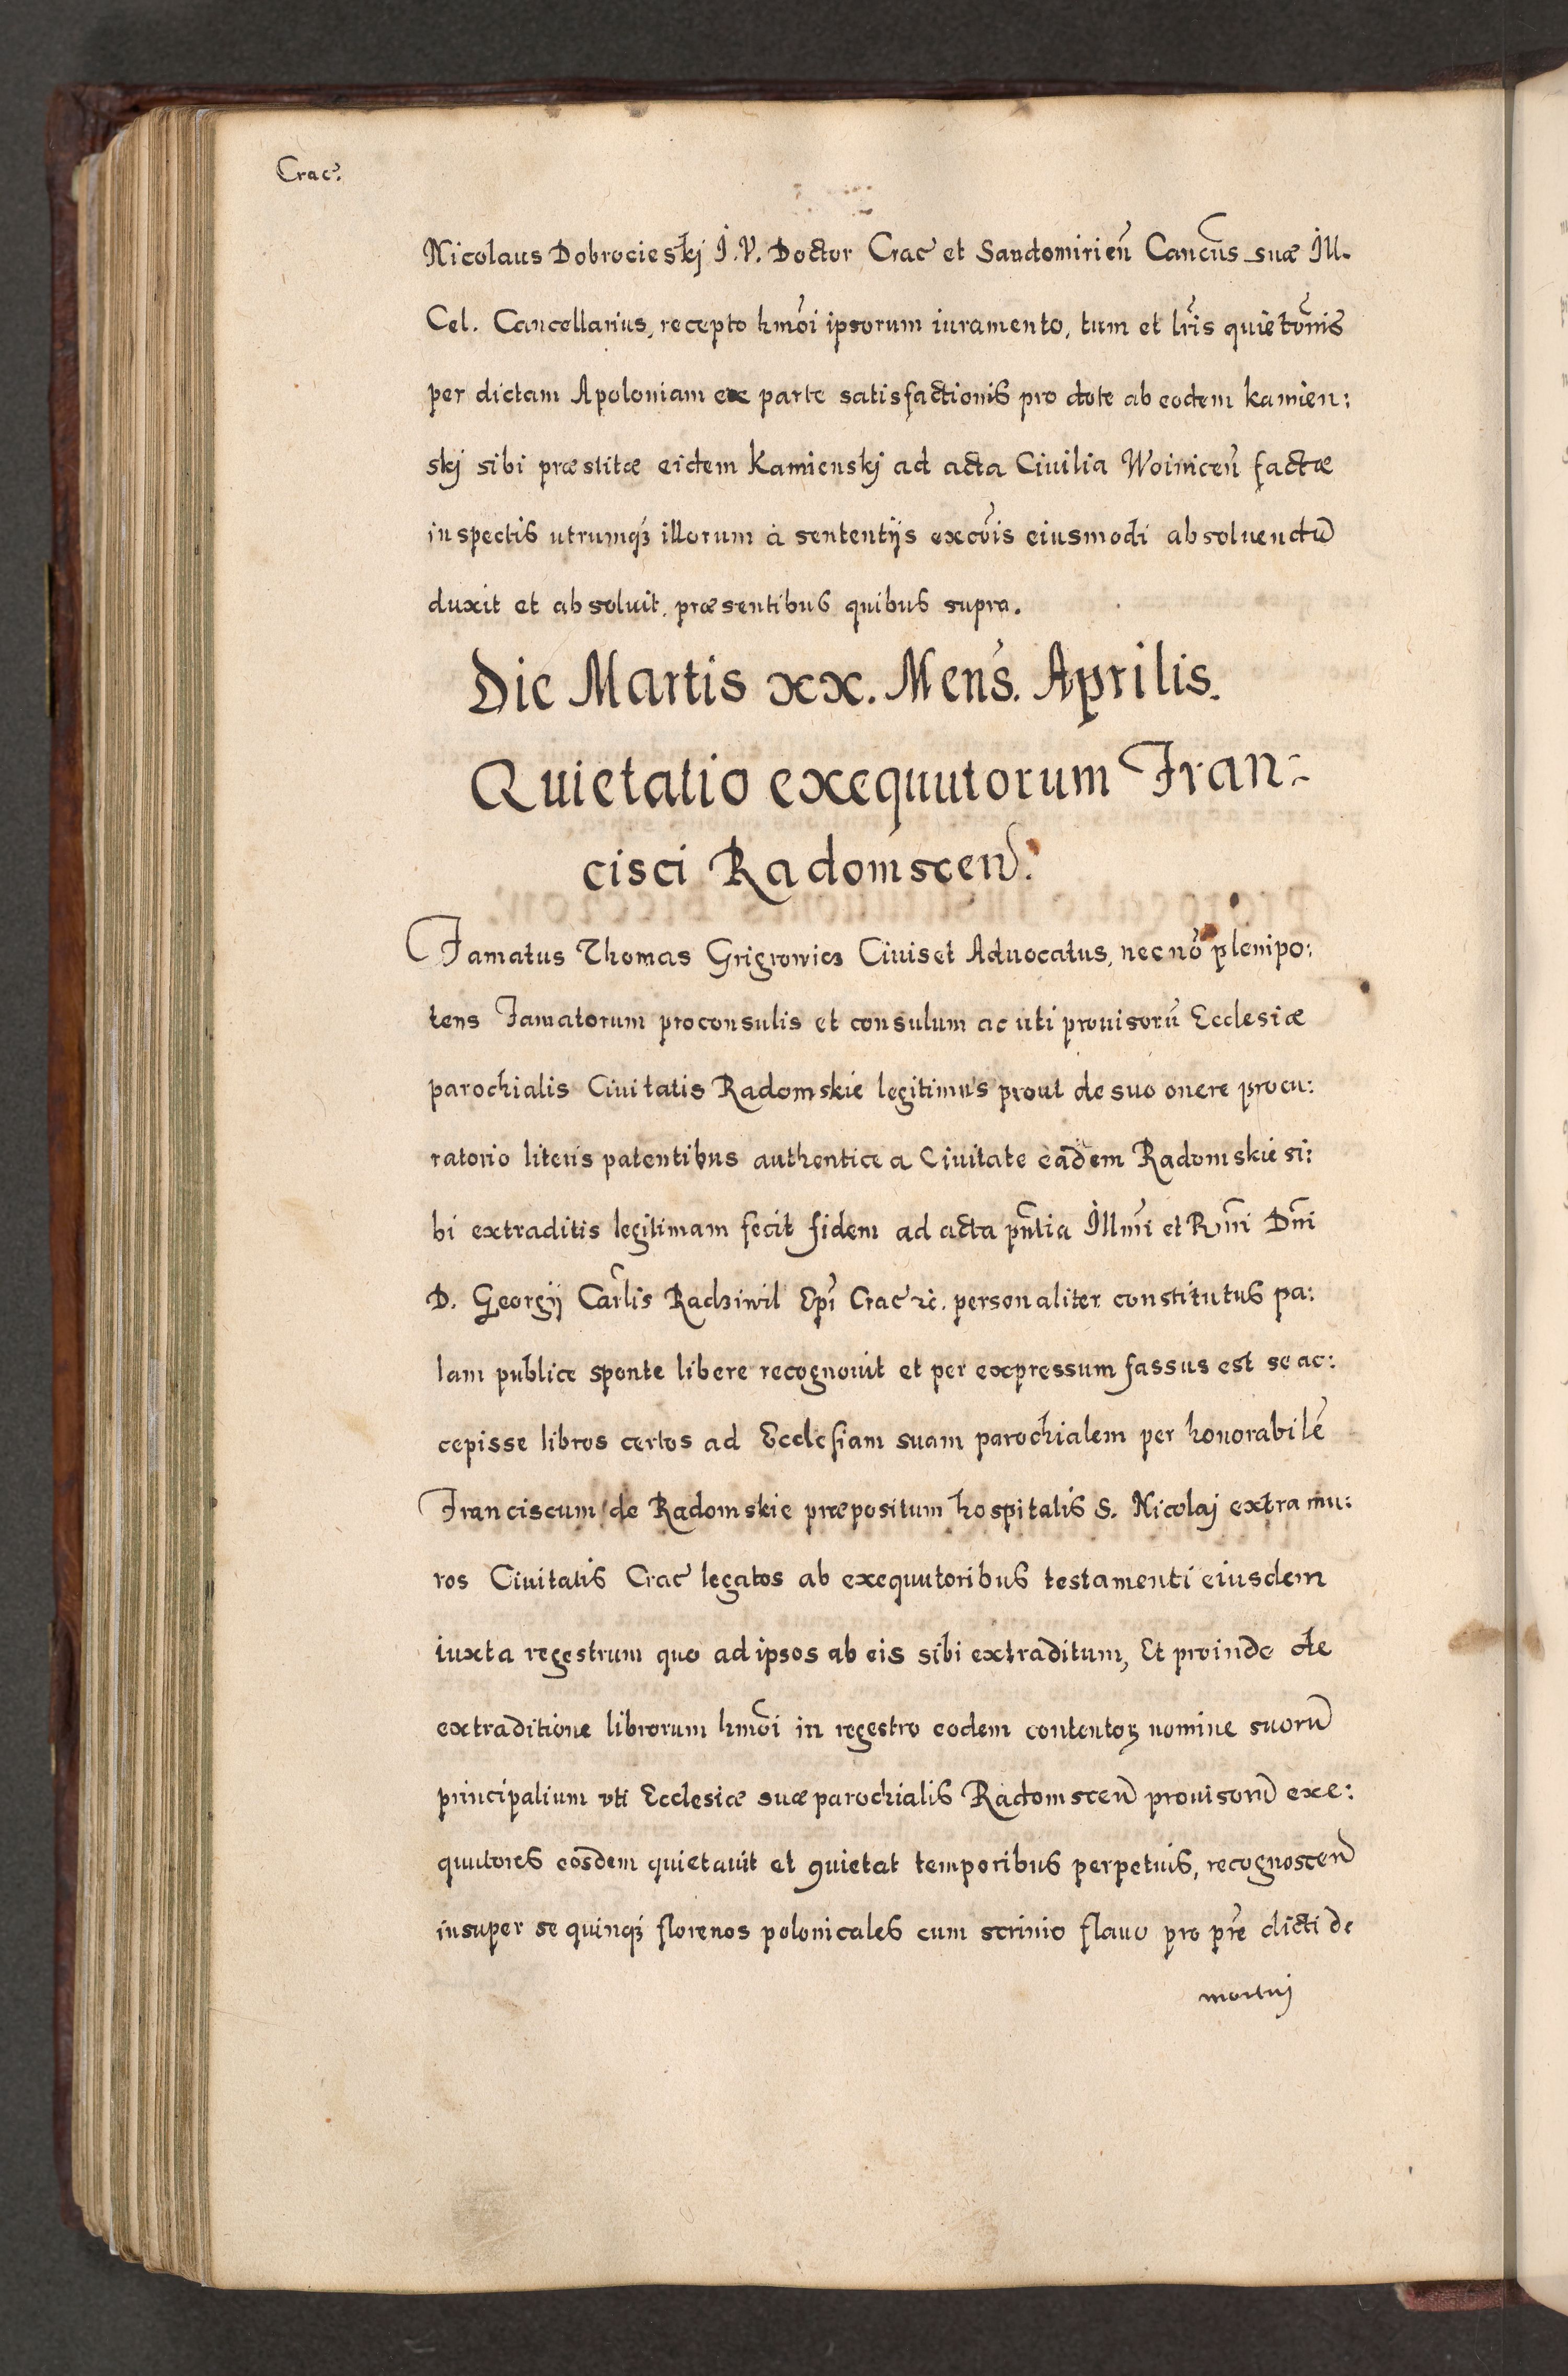 Crac̄.
Nicolaus Dobrocieskj I. V. Doctor Crac̄ et Sandomirien̄ Cancūs suæ Ill.
Cel. Cancellarius, recepto hmōi ipsorum iuramento, tum et lr̄is quietōnis
per dictam Apoloniam ex parte satisfactionis pro dote ab eodem kamien:
skj sibi præstitæ eidem Kamienskj ad acta Ciuilia Woinicen̄ factæ
inspectis utrumqꝫ illorum à sententijs excōis eiusmodi absoluendū
duxit et absoluit, præsentibus quibus supra.
Die Martis xx. Mens̄. Aprilis.
Quietatio exequutorum Fran:
cisci Radomscen̄.
Famatus Thomas Grigrowicz Ciuis et Aduocatus, nec nō plenipo:
tens Famatorum proconsulis et consulum ac uti prouisorū Ecclesiæ
parochialis Ciuitatis Radomskie legitimus prout de suo onere procu:
ratorio literis patentibus authentice a Ciuitate eādem Radomskie si:
bi extraditis legitimam fecit fidem ad acta pn̄tia Illmī et Rmī Dnī
D. Georgij Carlīs Radziwil Epī Crac̄ ꝛc̄. personaliter constitutus pa:
lam publice sponte libere recognouit et per expressum fassus est se ac:
cepisse libros certos ad Ecclesiam suam parochialem per honorabilē
Franciscum de Radomskie præpositum hospitalis S. Nicolaj extra mu:
ros Ciuitatis Crac̄ legatos ab exequutoribus testamenti eiusdem
iuxta regestrum quo ad ipsos ab eis sibi extraditum, Et proinde de
extraditione librorum hmōi in regestro eodem contentoꝝ nomine suorū
principalium vti Ecclesiæ suæ parochialis Radomscen̄ prouisorū exe:
quutores eosdem quietauit et quietat temporibus perpetuis, recognoscen̄
insuper se quinqꝫ florenos polonicales cum scrinio flauo pro pr̄e dicti de
mortuj